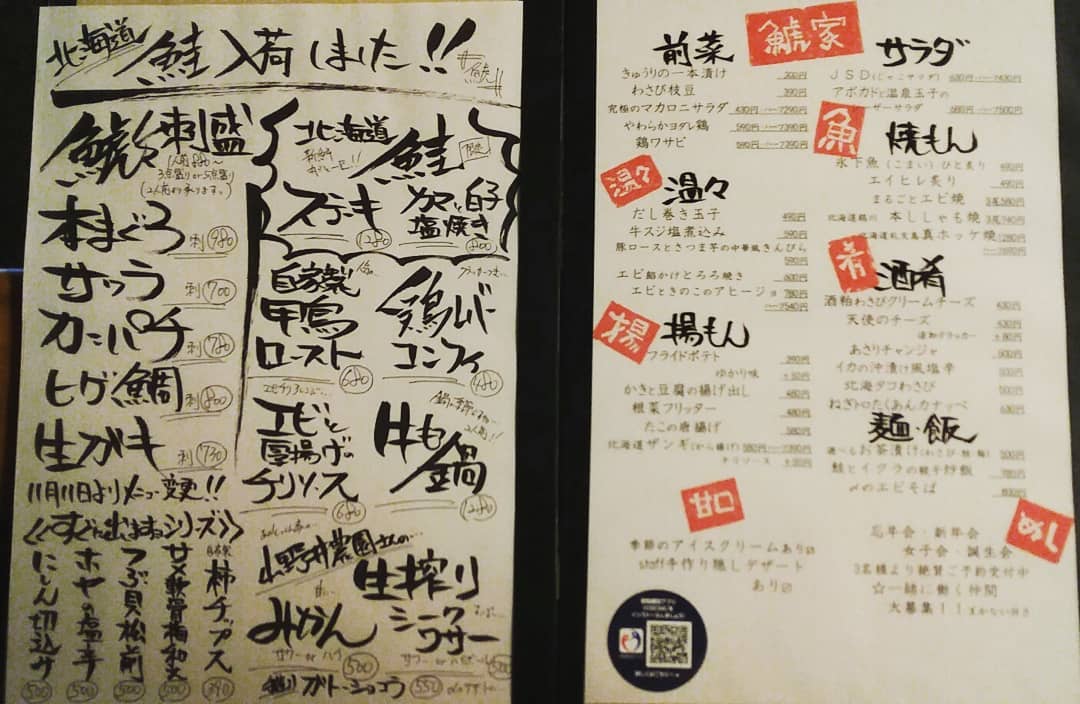 北海道 鮭入荷しました!!
刺盛
1人前 880〜
3点盛り or 5点盛り
(2人前より承ります。)
本まぐろ 刺 980
サワラ 刺 700
カンパチ 刺 780
ヒゲ鯛 刺 800
生ガキ 刺 730
11月11日よりメニュー変更!!
北海道 鮭
1280
白子
塩焼き 800
自家製
鴨
ロースト 680
鶏レバー
コンフィ 480
エビと
厚揚げの
チリソース 680
牛もつ
鍋 1280
生搾り
みかん
サワー or ハイ 500
シークワサー
500
ガトーショコラ 550
自家製 柿チップス 390
サメ軟骨梅和え 500
つぶ貝松前 500
ホヤの塩辛 500
にしん切込み 500
鯱家
前菜
きゅうりの一本漬け 300円
わさび枝豆 390円
究極のマカロニサラダ 430円 ハーフ290円
やわらかヨダレ鶏 590円 ハーフ390円
鶏ワサビ 590円 ハーフ390円
温々 温々
だし巻き玉子 490円
牛スジ塩煮込み 590円
豚ロースとさつま芋の中華風きんぴら
590円
エビ餡かけとろろ焼き 600円
エビときのこのアヒージョ 780円
ハーフ540円
揚 揚もん
フライドポテト 390円
ゆかり味 +50円
かきと豆腐の揚げ出し 480円
根菜フリッター 480円
たこの唐揚げ 580円
北海道ザンギ(から揚げ) 580円 ハーフ390円
チリソース +50円
甘口
季節のアイスクリームあり〼
staff手作り隠しデザート
あり〼
サラダ
JSD(じゃこサラダ) 630円 ハーフ430円
アボカドと温泉玉子の
シーザーサラダ 680円 ハーフ500円
魚 焼もん
氷下魚(こまい)ひと炙り 490円
エイヒレ炙り 490円
まるごとエビ焼 3尾580円
北海道鵡川 本ししゃも焼 3尾740円
真ホッケ焼 1280円
肴 酒肴
酒粕わさびクリームチーズ 430円
天使のチーズ 430円
追加クラッカー +80円
あさりチャンジャ 500円
イカの沖漬け風塩辛 500円
北海タコわさび 500円
ねぎトロたくあんカナッペ 630円
麺・飯
選べるお茶漬け(わさび・鮭・梅) 500円
鮭とイクラの親子炒飯 780円
〆のエビそば
めし
忘年会・新年会
女子会・誕生会
3名様より絶賛ご予約受付中
☆一緒に働く仲間
大募集!!まかない付き